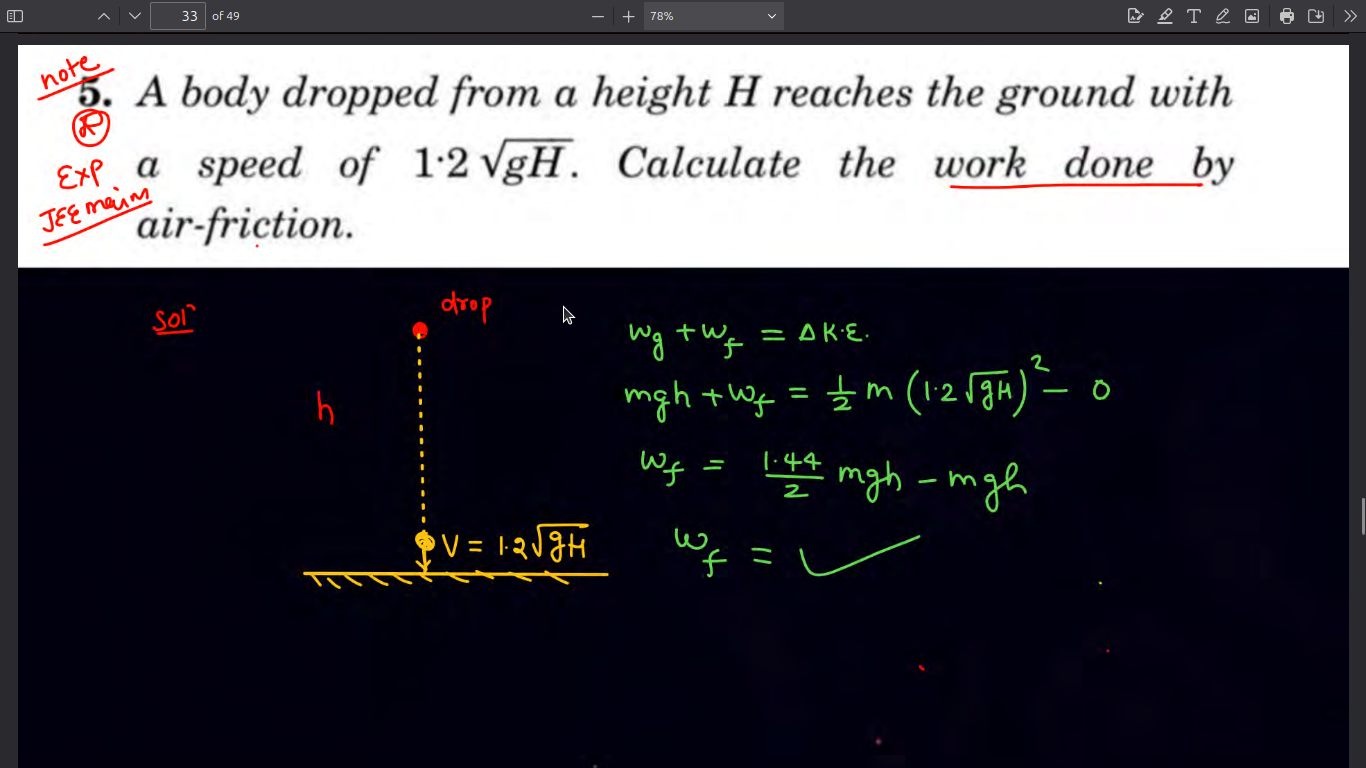 33 of 49
78%
note
5. A body dropped from a height H reaches the ground with
R
EXP
a speed of 1·2 √gH. Calculate the work done by
JEE main
air-friction.
Solⁿ
drop
h
V = 1.2√gH
Wg + Wf = Δ K.E.
mgh + Wf = 1/2 m (1.2 √gH)² − 0
Wf = 1.44/2 mgh − mgh
Wf =